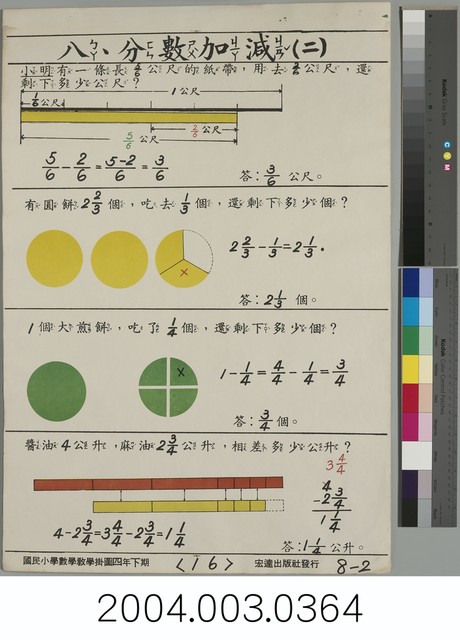 八、分數加減(二)
小明有一條長5/6公尺的紙帶，用去2/6公尺，還
剩下多少公尺？
1公尺
1/6公尺
2/6公尺
5/6公尺
5/6-2/6=5-2/6=3/6
答：3/6公尺。
有圓餅2 2/3個，吃去1/3個，還剩下多少個？
×
2 2/3-1/3=2 1/3.
答：2 1/3個。
1個大煎餅，吃了1/4個，還剩下多少個？
×
1-1/4=4/4-1/4=3/4
答：3/4個。
醬油4公升，麻油2 3/4公升，相差多少公升？
3 4/4
4
-2 3/4
1 1/4
4-2 3/4=3 4/4-2 3/4=1 1/4
答：1 1/4公升。
國民小學數學教學掛圖四年下期
<16>
宏達出版社發行
8-2
2004.003.0364